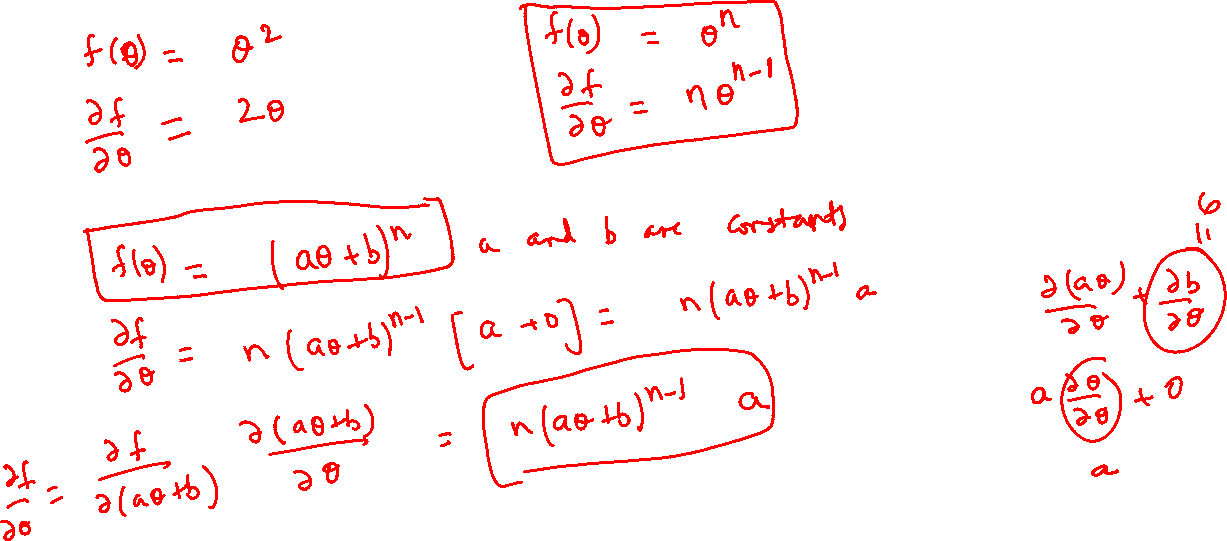 f(θ) = θ²
∂f/∂θ = 2θ
f(θ) = θⁿ
∂f/∂θ = nθⁿ⁻¹
f(θ) = (aθ+b)ⁿ a and b are constants
∂f/∂θ = n(aθ+b)ⁿ⁻¹ [a+0] = n(aθ+b)ⁿ⁻¹ a
∂f/∂θ = ∂f/∂(aθ+b) ∂(aθ+b)/∂θ = n(aθ+b)ⁿ⁻¹ a
∂(aθ)/∂θ + ∂b/∂θ
a ∂θ/∂θ + 0
a